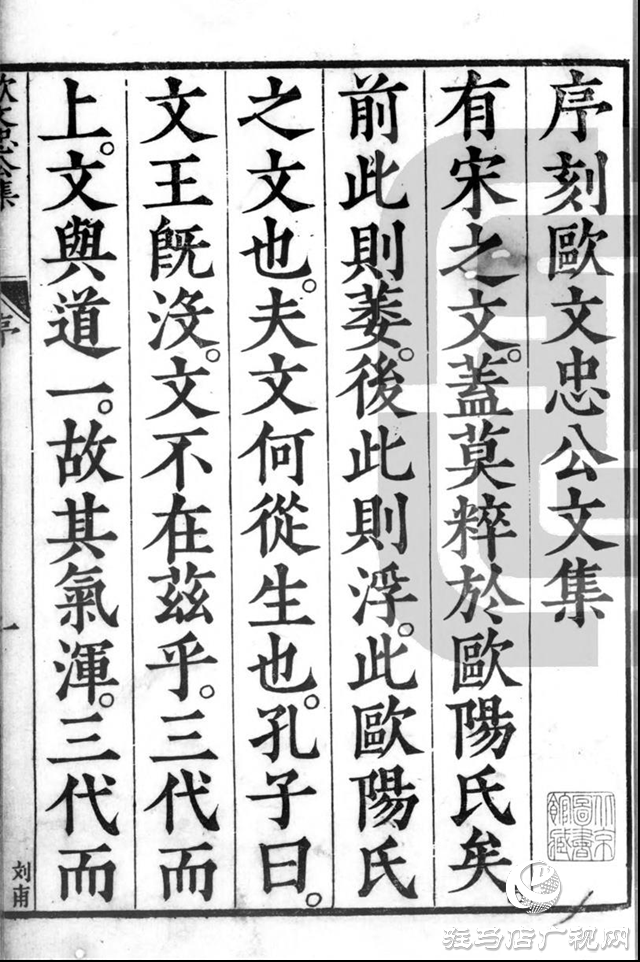 序刻歐文忠公文集
有宋之文。蓋莫粹於歐陽氏矣
前此則萎。後此則浮。此歐陽氏
之文也。夫文何從生也。孔子曰。
文王旣沒。文不在茲乎。三代而
上。文與道一。故其氣渾。三代而
歐文忠公集
序
一
刘甫
北京圖書館藏
驻马店广视网